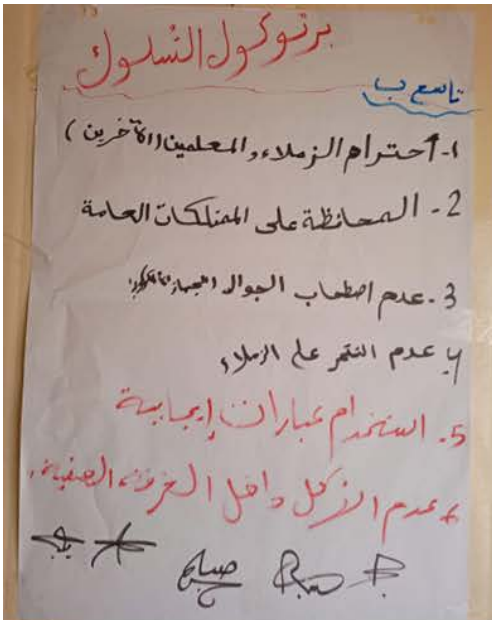 برتوكول السلوك
تاسع ب
1- احترام الزملاء والمعلمين (الآخرين)
2- المحافظة على الممتلكات العامة
3- عدم اصطحاب الجوال
4 عدم التنمر على الزملاء
5. استخدام عبارات إيجابية
6 عدم الأكل داخل الغرفة الصفية.